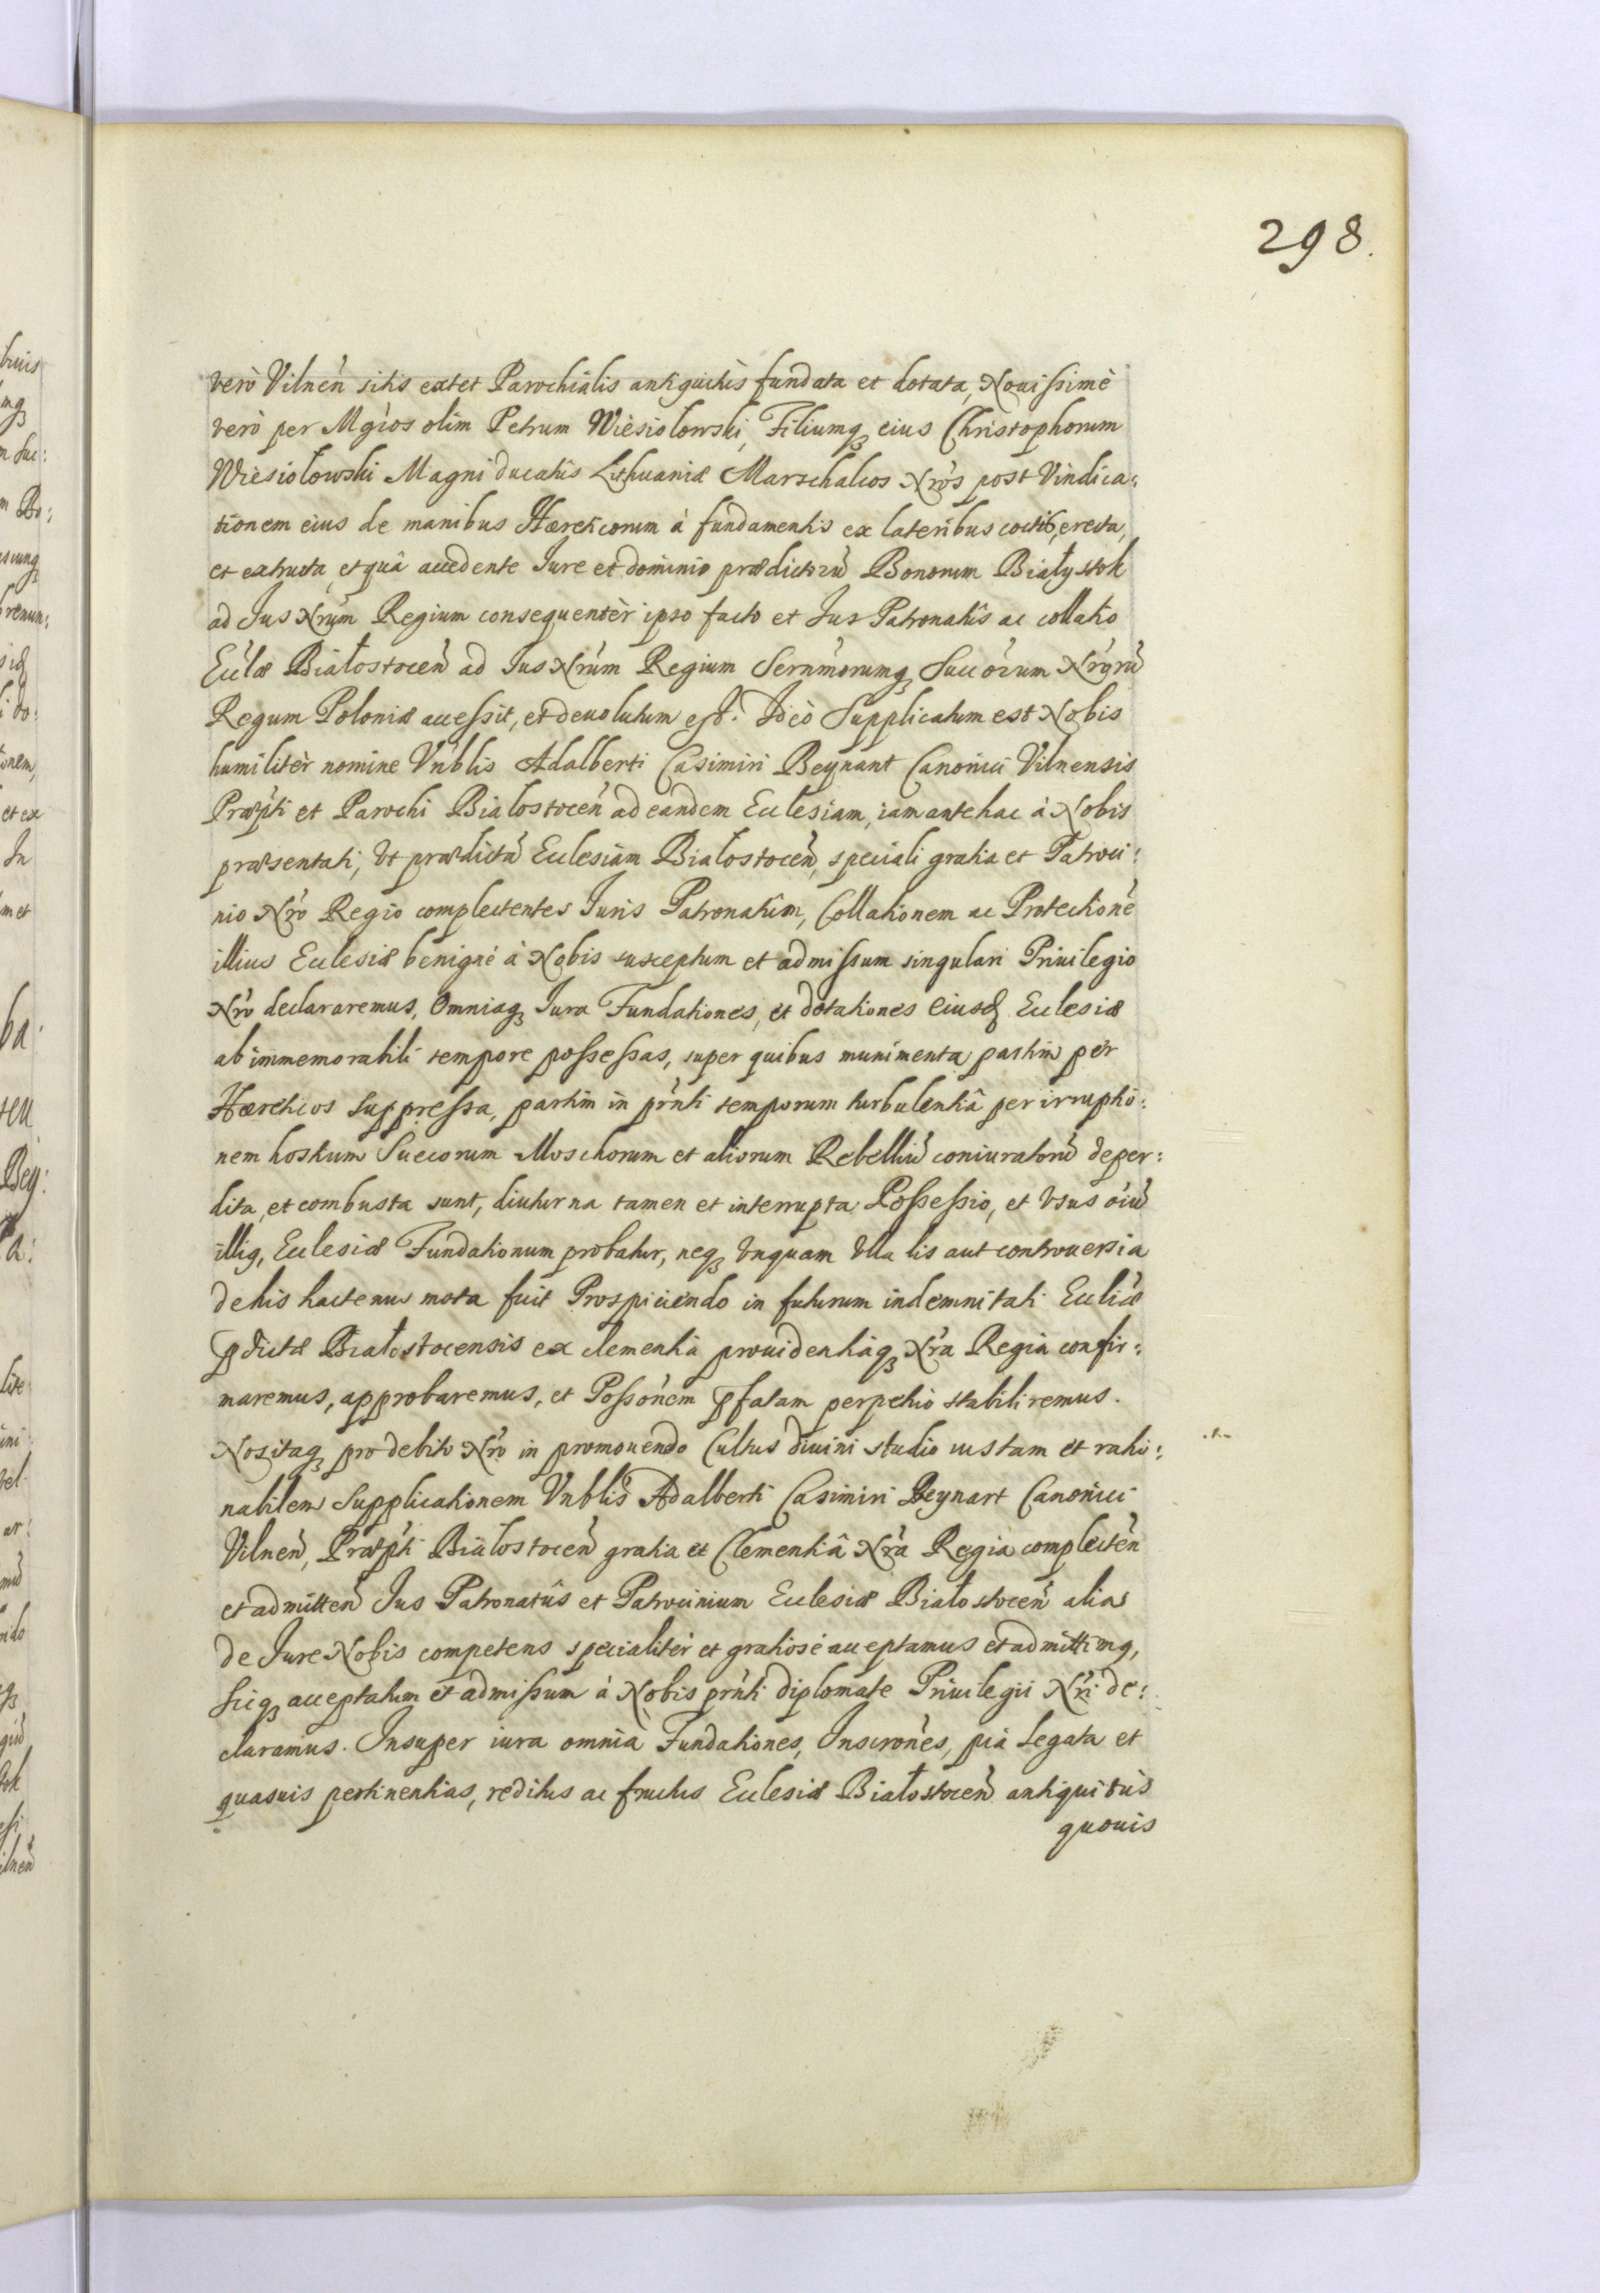 298.
verò Vilneñ sitis extet Parochialis antiquitùs fundata et dotata, Nouissimè
verò per Mgños olim Petrum Wiesiolowski, Filiumq3 eius Christophorum
Wiesiołowski Magni ducatûs Lithuaniæ Marschalcos Nr̃os post Vindica:
tionem eius de manibus Hæreticorum à fundamentis ex lateribus coctib9 erecta,
et extructa, et quâ accedente Iure et dominio prædictorũ Bonorum Białystok
ad Ius Nr̃um Regium consequentèr ipso facto et Ius Patronatûs ac collatio
Eccłæ Białostoceñ ad Ius Nr̃um Regium Sernm̃orumq3 Succõrum Nr̃orũ
Regum Poloniæ accessit, et deuolutum est. Ideò Supplicatum est Nobis
humilitèr nomine Vñblis Adalberti Casimiri Beynart Canonici Vilnensis
Præp̃ti et Parochi Bialostoceñ ad eandem Ecclesiam, iam antehac à Nobis
præsentati, Vt prædictã Ecclesiam Białostoceñ, speciali gratia et Patroci:
nio Nr̃o Regio complectentes Iuris Patronatûm, Collationem ac Protectionẽ
illius Ecclesiæ benignè à Nobis susceptum et admissum singulari Priuilegio
Nr̃o declararemus, Omniaq3 Iura Fundationes, et dotationes eiusd Ecclesiæ
ab immemorabili tempore possessas, super quibus munimenta partim per
Hæreticos suppressa, partim in pr̃nti temporum turbulentiâ per irruptio:
nem hostium Suecorum Moschorum et aliorum Rebelliũ coniuratorũ deper:
dita, et combusta sunt, diuturna tamen et interrupta Possessio, et Vsus oĩũ
illi9, Ecclesiæ Fundationum probatur, neq3 Vnquam Vlla lis aut controuersia
de his hactenus mota fuit Prospiciendo in futurum indemnitati Eccliæ
p̃dictæ Białostocensis ex clementia prouidentiaq3 Nr̃a Regia confir:
maremus, approbaremus, et Possõnem p̃fatam perpetuo stabiliremus.
Nos itaq3 pro debito Nr̃o in promouendo Cultus diuini studio iustam et ratio:
nabilem Supplicationem Vñblis Adalberti Casimiri Beynart Canonici
Vilneñ, Præp̃ti Białostoceñ gratia et Clementiâ Nr̃a Regia complecteñ
et admitteñ Ius Patronatûs et Patrocinium Ecclesiæ Białostoceñ alias
de Iure Nobis competens specialitèr et gratiosè acceptamus et admittim9,
sicq3 acceptatum et admissum à Nobis pr̃nti diplomate Priuilegii Nr̃i de:
claramus. Insuper iura omnia Fundationes, Inscrõnes, pia Legata et
quasuis pertinentias, reditus ac fructus Ecclesiæ Białostoceñ antiquitùs
quouis